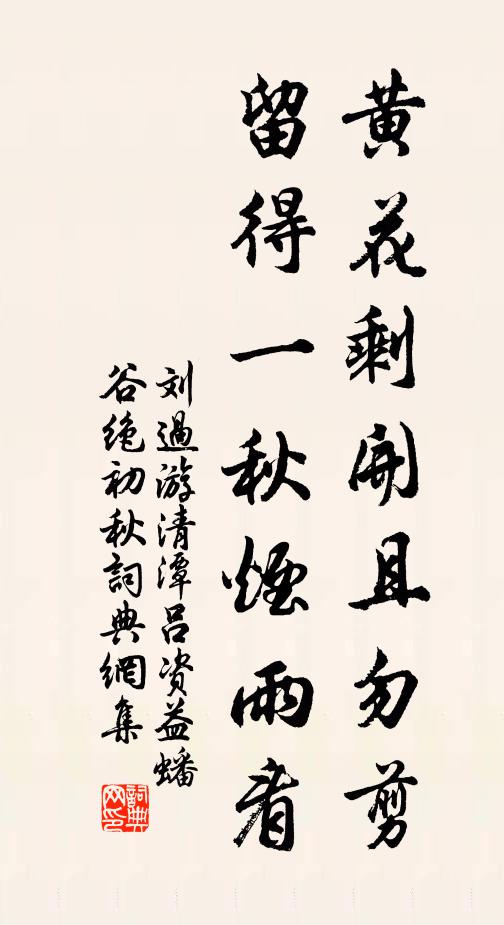 黄花剩開且勿剪
留得一秋煙雨看
刘過游清潭吕资益蟠
谷绝初秋詞典網集
詞典网印